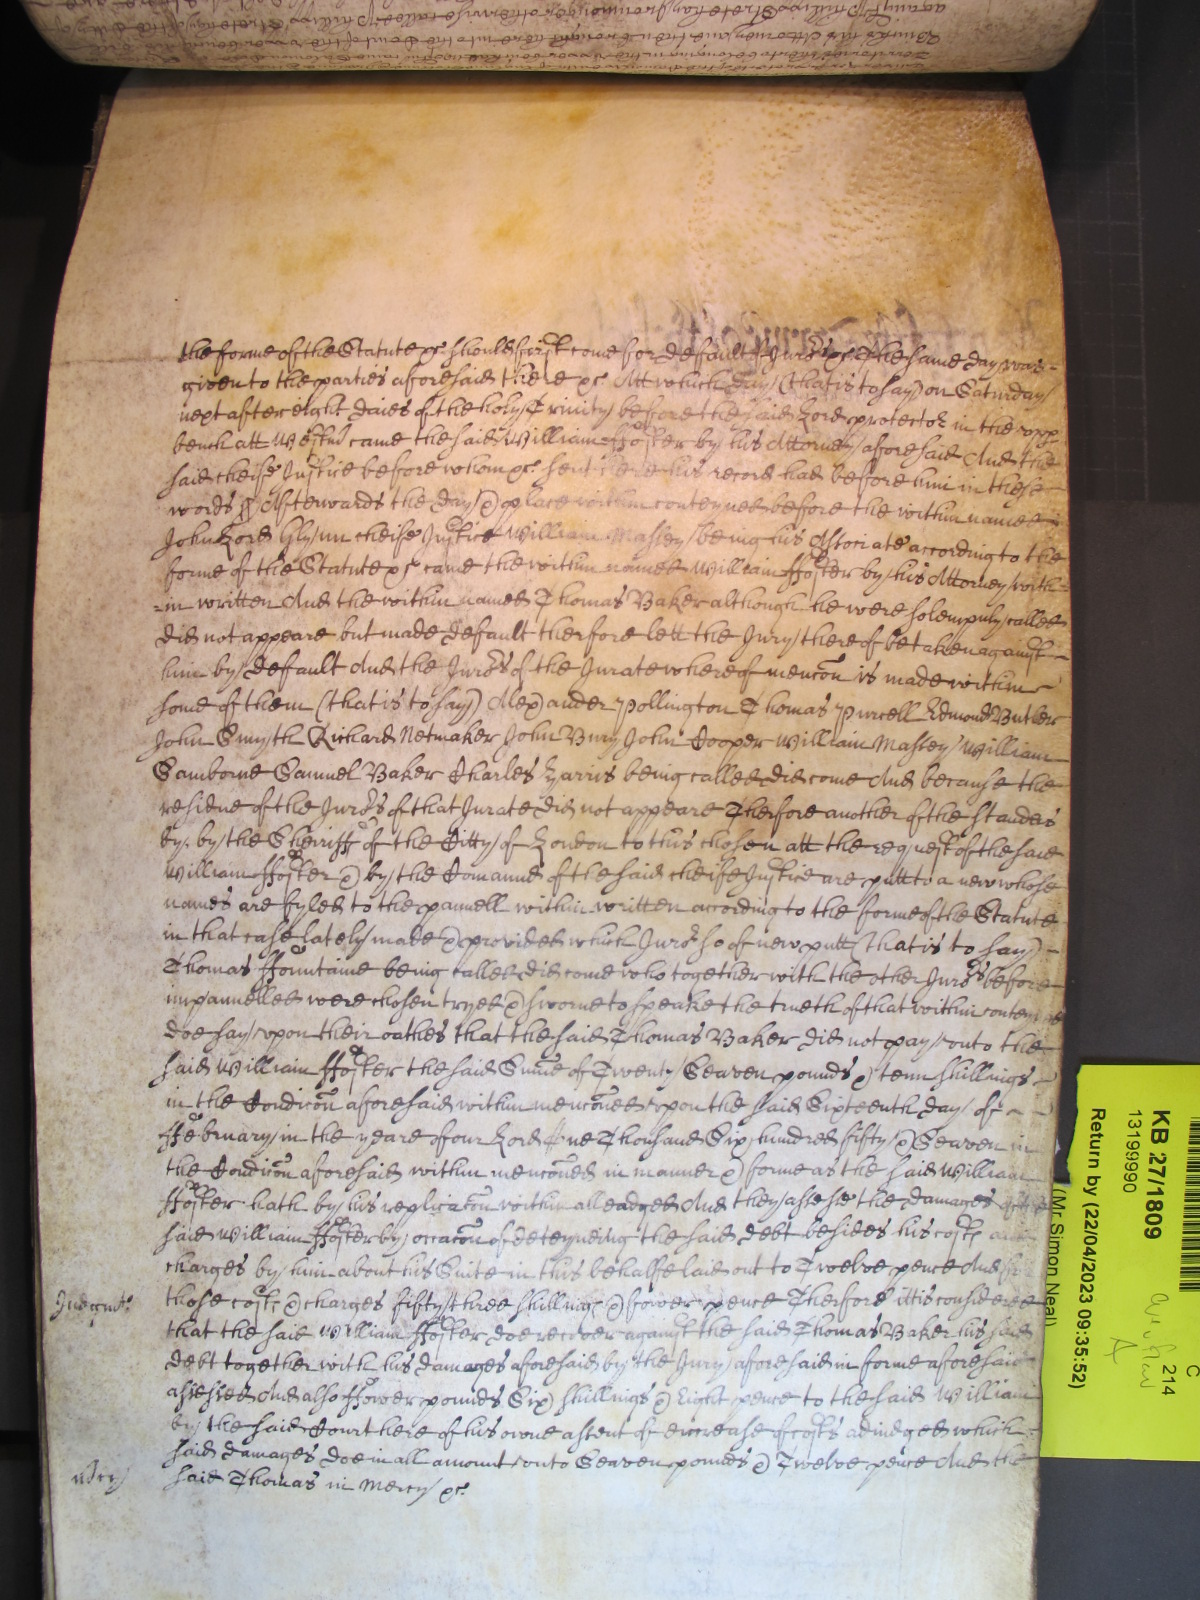 the forme of the Statute &c should first come for default of Juro[rs] &c The same day was
given to the parties aforesaid there &c Att which day (that is to say) on Saturday
next after eight daies of the holy Trinity before the said Lord protector in the upp
bench att Westm[r] came the said William Ffoster by his Attorney aforesaid And the
said cheife Justice before whom &c sent here his record had before him in these
words ss Afterwards the day & place within conteyned before the within named
John Lord Glynn cheife Justice William Massey being his Associate according to the
forme of the Statute &c came the within named William Ffoster by his Attorney with
in written And the within named Thomas Baker although he were solempnly called
did not appeare but made default therfore lett the Jury thereof be taken against
him by default And the Juro[rs] of the Jurate whereof mencon is made within
some of them (that is to say) Alexander Pollington Thomas Purcell Edmond Butler
John Smyth Richard Netmaker John Bury John Cooper William Massey William
Samborne Samuel Baker Charles Harris being called did come And because the
residue of the Juro[rs] of that Jurate did not appeare Therfore another of the standers
by by the Sheriffs of the Citty of London to this chosen att the request of the said
William Ffoster & by the Comannd of the said cheife Justice are putt to a new whose
names are fyled to the pannell within written according to the forme of the Statute
in that case lately made & provided which Juro[r] so of new putt (that is to say)
Thomas Ffountaine being called did come who together with the other Juro[rs] before
impannelled were chosen tryed & sworne to speake the trueth of that within conteyned
doe say upon their oathes that the said Thomas Baker did not pay unto the
said William Ffoster the said Summe of Twenty Seaven pounds & tenn shillings
in the Condicon aforesaid within menconed upon the said Sixteenth day of
Ffebruary in the yeare of our Lord One Thousand Six hundred fifty & Seaven in
the Condicon aforesaid within menconed in manner & forme as the said William
Ffoster hath by his replicacon within alleadged And they assesse the damages of the
said William Ffoster by occacon of deteyneing the said debt besides his costs and
charges by him about his Suite in this behalfe laid out to Twelve pence And for
Judgmt. those costs & charges fifty three shillings & fower pence Therfore itt is considered
that the said William Ffoster doe recover against the said Thomas Baker his said
debt together with his damages aforesaid by the Jury aforesaid in forme aforesaid
assessed And also Ffower pounds Six shillings & Eight pence to the said William
by the said Court here of his owne assent of encrease of costs adiudged which
said damages doe in all amount unto Seaven pounds & Twelve pence And the
mercy said Thomas in Mercy &c
KB 27/1809
13199990
Return by (22/04/2023 09:35:52)
(Mr Simon Neal)
C
214
A